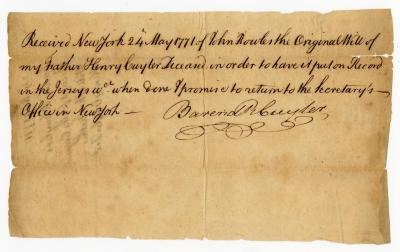 Received New York 24th May 1771 of John Rowles the Original Will of
my Father Henry Cuyler Deceasd in order to have it put on Record
in the Jerseys wch when done I promise to return to the Secretary's
Office in New York —
Barend R Cuyler